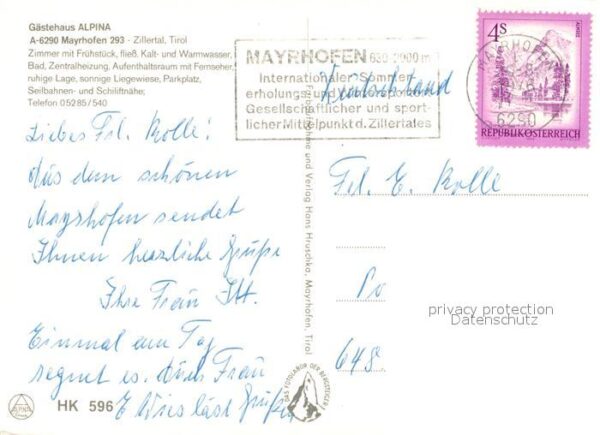 Gästehaus ALPINA
A-6290 Mayrhofen 293 - Zillertal, Tirol
Zimmer mit Frühstück, fließ. Kalt- und Warmwasser,
Bad, Zentralheizung, Aufenthaltsraum mit Fernseher,
ruhige Lage, sonnige Liegewiese, Parkplatz,
Seilbahnen- und Schiliftnähe;
Telefon 05285/540
MAYRHOFEN 630-2000 m
Internationaler Sommer-
erholungs- und Wintersportort
Gesellschaftlicher und sport-
licher Mittelpunkt d. Zillertales
Deutschland
4S
REPUBLIK ÖSTERREICH
MAYRHOFEN
6290
Liebes Frl. Kolle!
Aus dem schönen
Mayrhofen sendet
Ihnen herzliche Grüße
Ihre Frau
Einmal am Tag
regnet es. Auch Frau
läst Grüßen
und Verlag Hans Hruschka, Mayrhofen, Tirol
Frl. E. Kolle
Po
648
privacy protection
Datenschutz
DAS FOTOLABOR DER BERGSTEIGER
ALPINA
HK 596